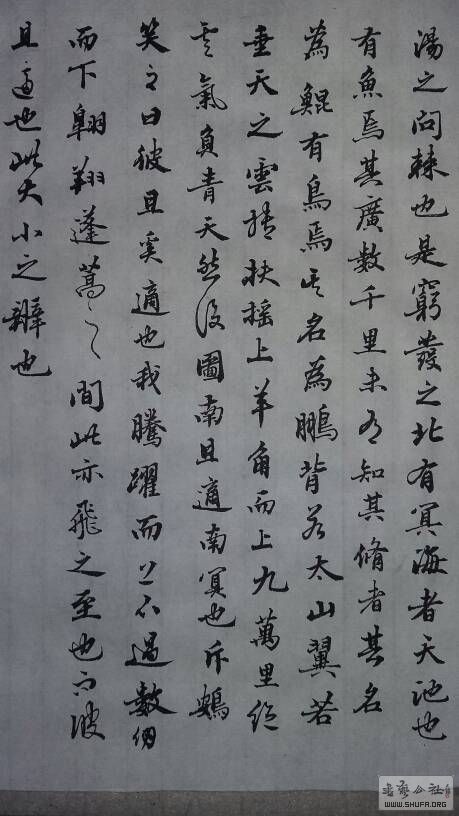 湯之问棘也是窮髮之北有冥海者天池也
有魚焉其廣數千里未有知其脩者其名
為鯤有鳥焉其名為鵬背若太山翼若
垂天之雲摶扶摇上羊角而上九萬里絕
雲氣負青天然後圖南且適南冥也斥鴳
笑之曰彼且奚適也我騰躍而上不過數仞
而下翱翔蓬蒿之間此亦飛之至也而彼
且適也此大小之辯也
书艺公社
WWW.SHUFA.ORG